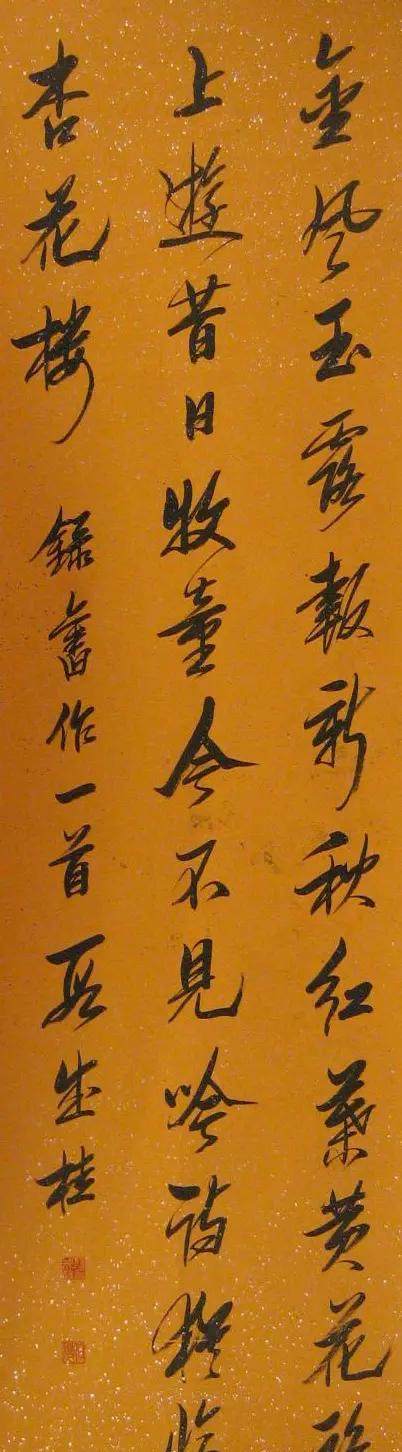 金風玉露報新秋紅葉黄花
上遊昔日牧童今不見吟詩
杏花樓
錄舊作一首 段成桂